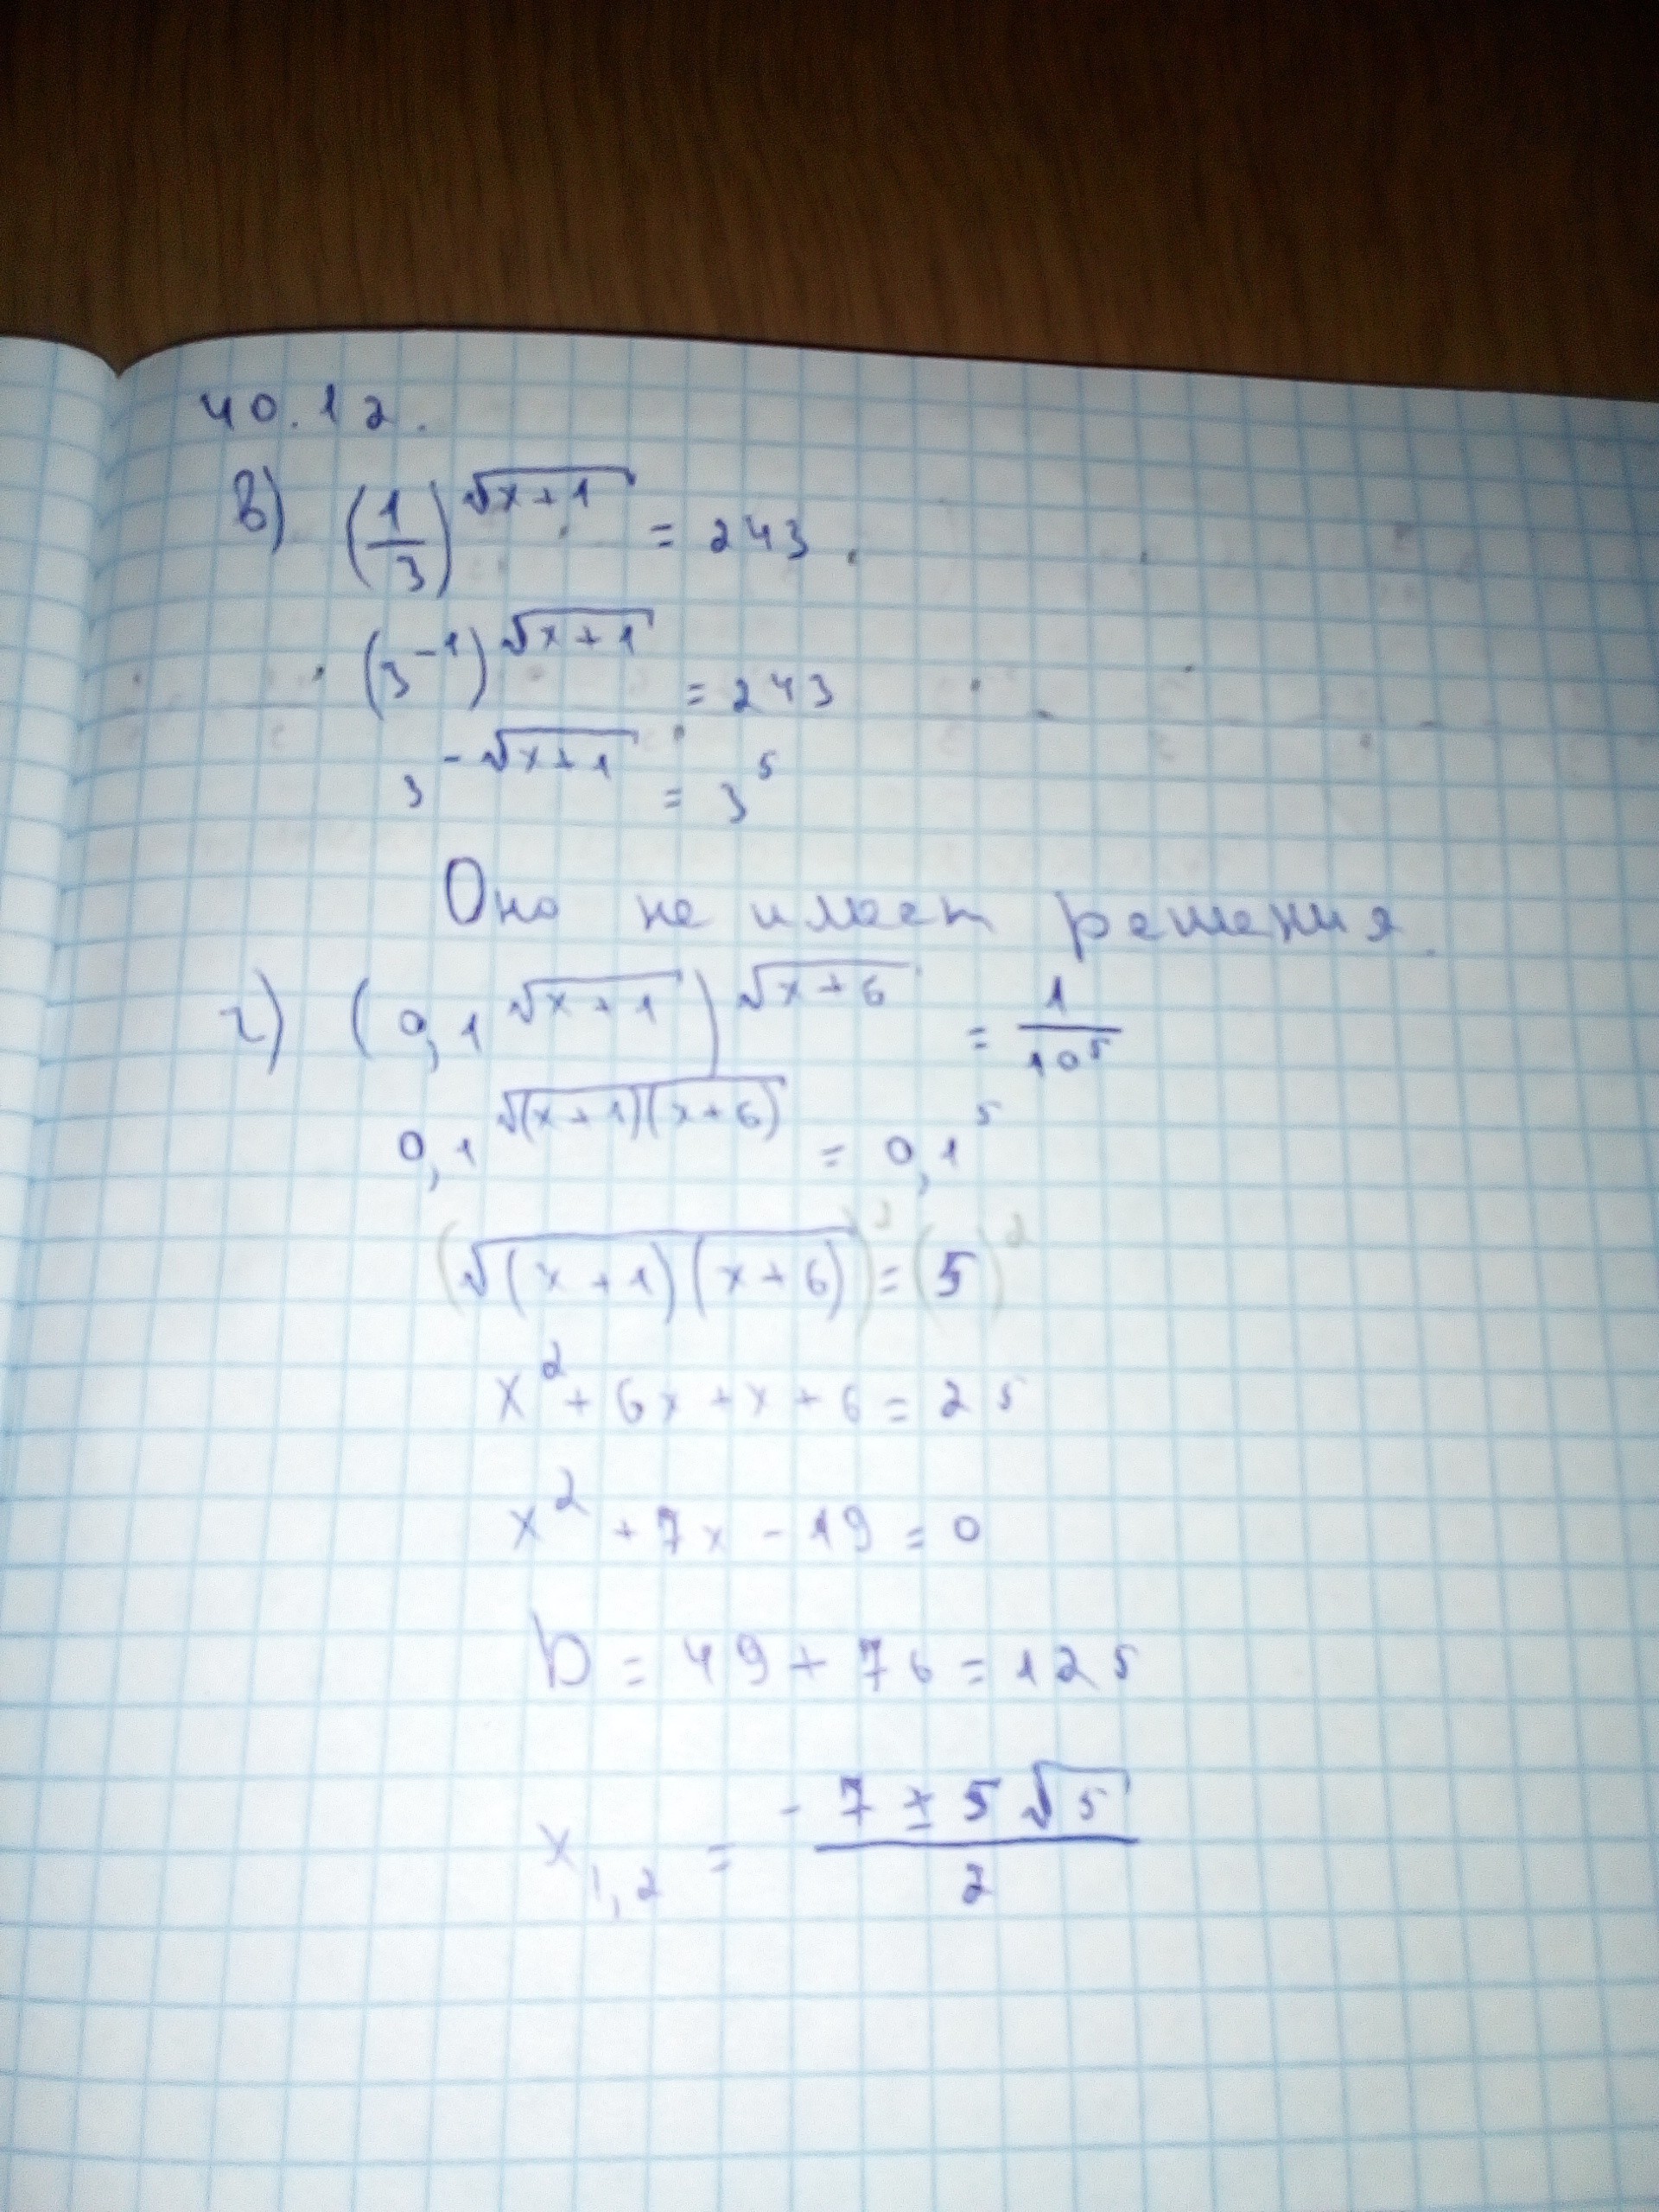 40.12.
в) (1/3)^√(x+1) = 243.
(3^-1)^√(x+1) = 243
3^-√(x+1) = 3^5
Оно не имеет решения.
г) (0,1^√(x+1))^√(x+6) = 1/10^5
0,1^√((x+1)(x+6)) = 0,1^5
(√((x+1)(x+6)))^2 = (5)^2
x^2 + 6x + x + 6 = 25
x^2 + 7x - 19 = 0
D = 49 + 76 = 125
x1,2 = (-7 ± 5√5)/2